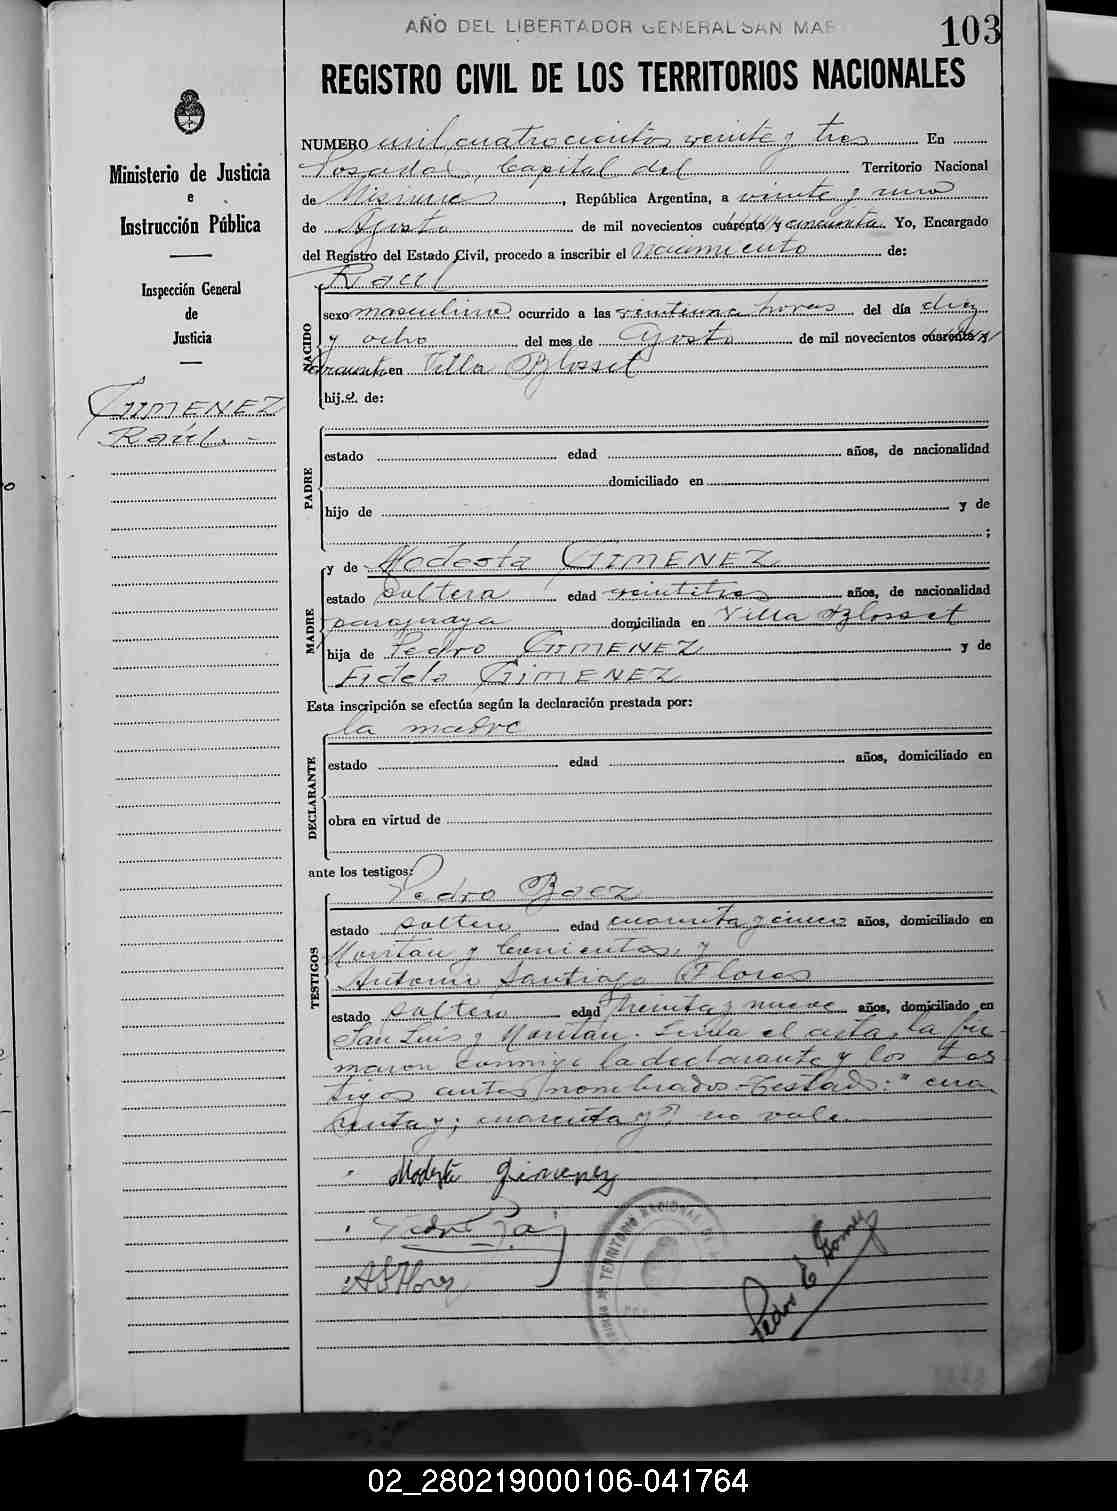 AÑO DEL LIBERTADOR GENERAL SAN MAR
103
REGISTRO CIVIL DE LOS TERRITORIOS NACIONALES
Ministerio de Justicia
e
Instrucción Pública
Inspección General
de
Justicia
GIMENEZ
Raúl.-
NUMERO mil cuatrocientos veinte y tres En
Posadas, Capital del Territorio Nacional
de Misiones, República Argentina, a veinte y uno
de Agosto de mil novecientos cuarenta y cincuenta Yo, Encargado
del Registro del Estado Civil, procedo a inscribir el nacimiento de:
Raul
NACIDO
sexo masculino ocurrido a las veintiuna horas del día diez
y ocho del mes de Agosto de mil novecientos cuarenta y
cincuenta en Villa Blosset
hij.o. de:
PADRE
estado edad años, de nacionalidad
domiciliado en
hijo de y de
;
MADRE
y de Modesta GIMENEZ
estado soltera edad veintitres años, de nacionalidad
paraguaya domiciliada en Villa Blosset
hija de Pedro GIMENEZ y de
Fidela GIMENEZ
Esta inscripción se efectúa según la declaración prestada por:
la madre
DECLARANTE
estado edad años, domiciliado en
obra en virtud de
ante los testigos:
Pedro Baez
TESTIGOS
estado soltero edad cuarenta y cinco años, domiciliado en
y Corrientes, y
Antonio Santiago Flores
estado soltero edad treinta y nueve años, domiciliado en
San Luis y Leida el acta, la fir-
maron conmigo la declarante y los tes
tigos antes nombrados.-Testado: "cua
renta y; cuarenta y", no vale.
Modesta Gimenez
Pedro
A S Flores
TERRITORIO NACIONAL
Pedro E Gomez
02_280219000106-041764